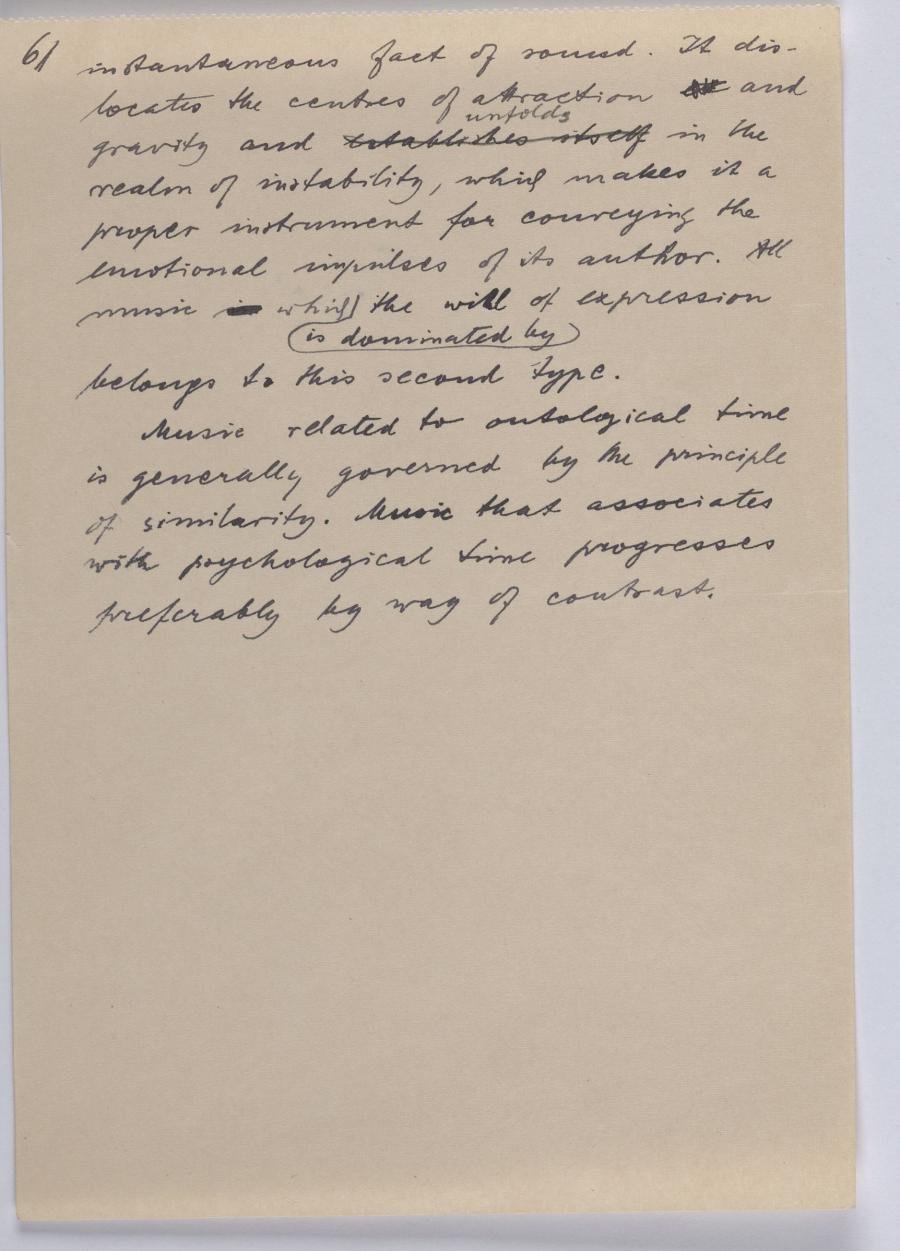 6/
instantaneous fact of sound. It dis-
locates the centres of attraction and
unfolds
gravity and establishes itself in the
realm of instability, which makes it a
proper instrument for conveying the
emotional impulses of its author. All
music which the will of expression
is dominated by
belongs to this second type.
Music related to ontological time
is generally governed by the principle
of similarity. Music that associates
with psychological time progresses
preferably by way of contrast.